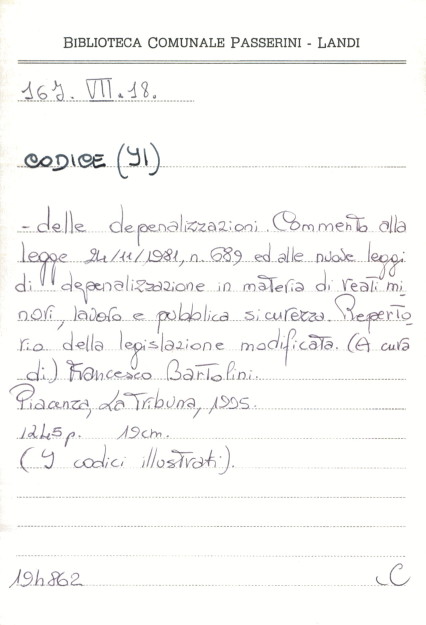 BIBLIOTECA COMUNALE PASSERINI - LANDI
167. VII. 18.
CODICE (Il)
- delle depenalizzazioni. Commento alla
legge 24/11/1981, n. 689 ed alle nuove leggi
di depenalizzazione in materia di reati mi_
nori, lavoro e pubblica sicurezza. Reperto_
rio della legislazione modificata. (A cura
di) Francesco Bartolini.
Piacenza, La Tribuna, 1995.
1245 p. 19 cm.
(I codici illustrati).
194862 C